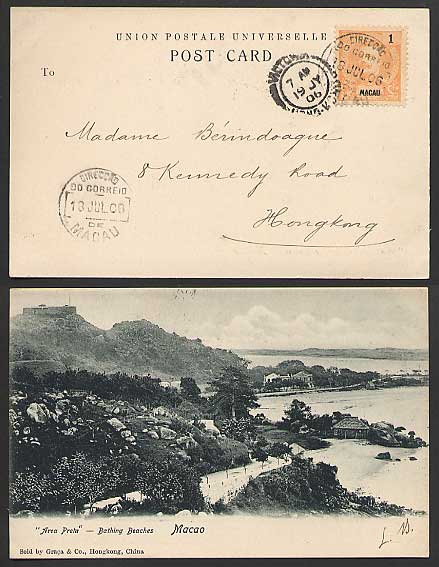 UNION POSTALE UNIVERSELLE
POST CARD
To
1
MACAU
DIRECÇÃO
DO CORREIO
18 JUL 06
VICTORIA
7 AM
19 JY
06
HONG-KONG
Madame Bérindoague
8 Kennedy Road
Hongkong
DIRECÇÃO
DO CORREIO
18 JUL 06
DE
MACAU
"Area Preta" — Bathing Beaches Macao
Sold by Graça & Co., Hongkong, China